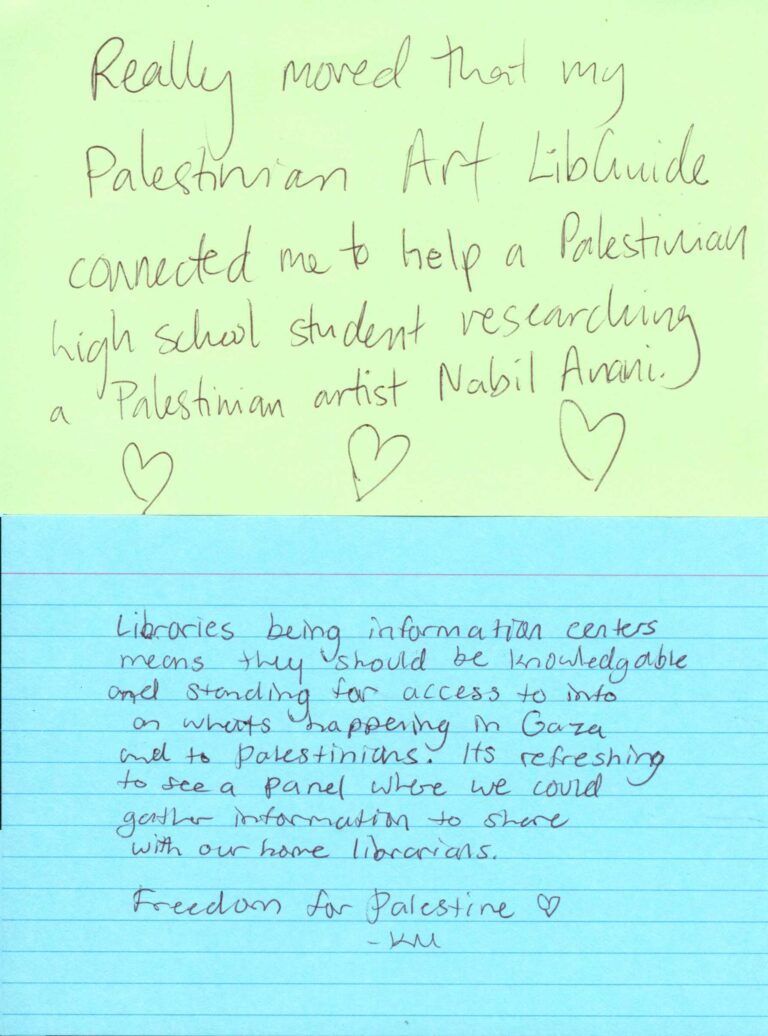 Really moved that my
Palestinian Art LibGuide
connected me to help a Palestinian
high school student researching
a Palestinian artist Nabil Anani.
Libraries being information centers
means they should be knowledgable
and standing for access to info
on whats happening in Gaza
and to Palestinians. Its refreshing
to see a panel where we could
gather information to share
with our home librarians.
Freedom for Palestine ♡
-KM